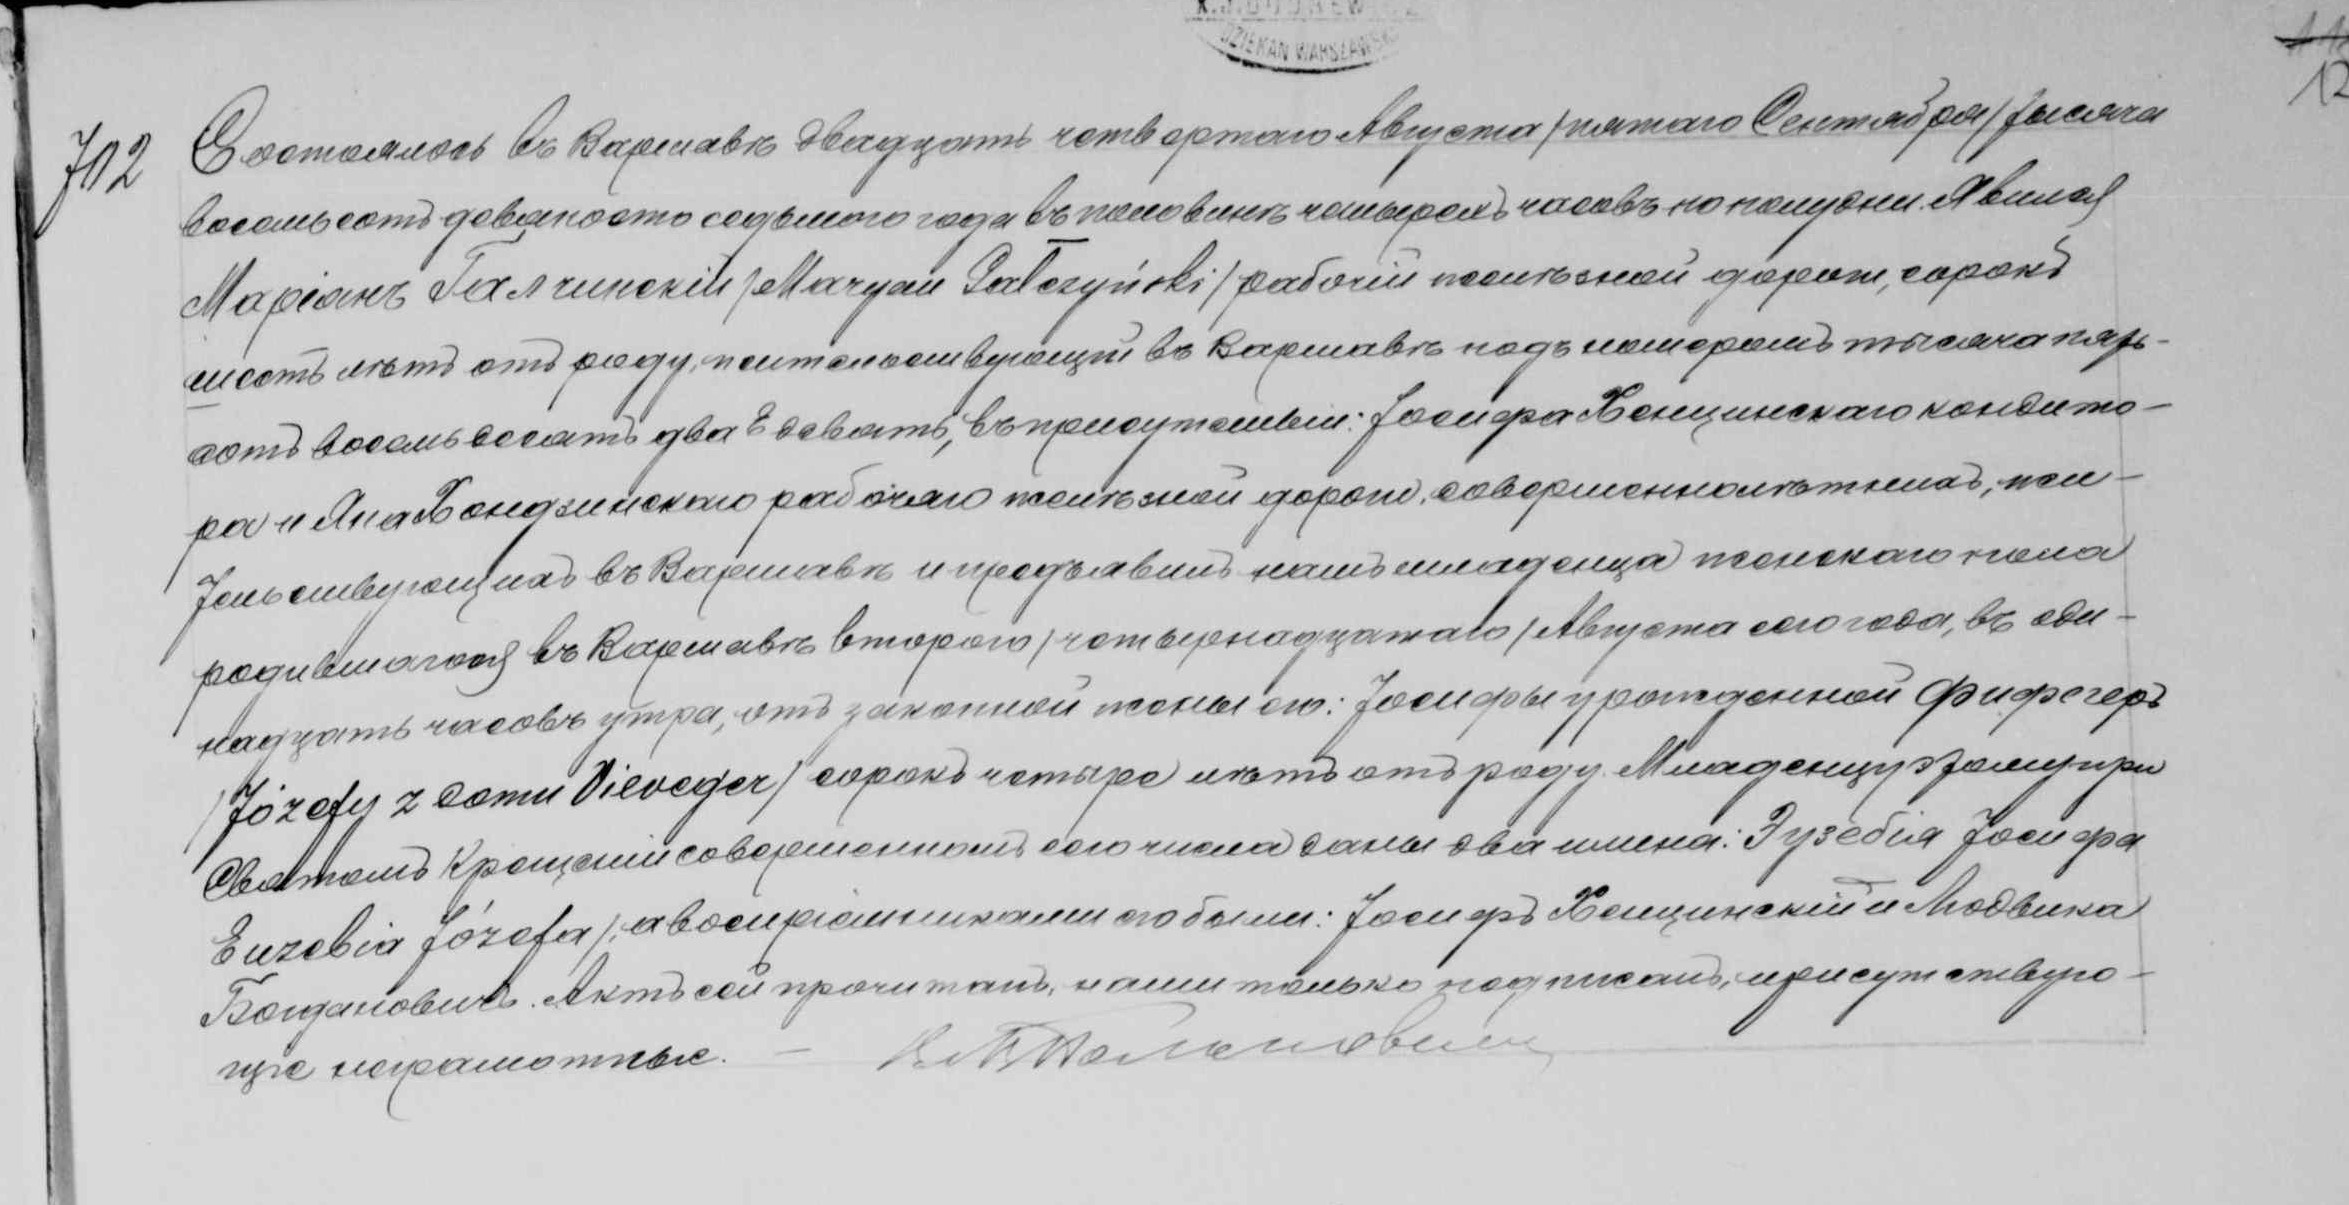 DZIEKAN WARSZAWSKI
12
702
Состоялось въ Варшавѣ двадцать четвертаго Августа /пятаго Сентября/ тысяча
восемьсотъ девяносто седьмого года въ половинѣ четырехъ часовъ по полудни. Явился
Маріанъ Галчинскій /Maryan Gałczyński/ рабочій желѣзной дороги, сорокъ
шесть лѣтъ отъ роду, жительствующій въ Варшавѣ подъ номеромъ тысяча пять-
сотъ восемьдесятъ два Е девять, въ присутствіи: Іосифа Хенцинскаго кондито-
ра и Яна Хондзинскаго рабочаго желѣзной дороги, совершеннолѣтнихъ, жи-
тельствующихъ въ Варшавѣ и предъявилъ намъ младенца женскаго пола
родившагося въ Варшавѣ второго /четырнадцатаго/ Августа сего года, въ оди-
надцать часовъ утра, отъ законной жены его: Іосифы урожденной Фифегеръ
/Józefy z domu Vieveger/ сорокъ четыре лѣтъ отъ роду. Младенцу этому при
Святомъ Крещеніи совершенномъ сего числа даны два имена: Эузебія Іосифа
Euzebia Józefa/, а воспріемниками его были: Іосифъ Хенцинскій и Людвика
Богдановичъ. Актъ сей прочитанъ, нами только подписанъ, присутствую-
щіе неграмотные. —